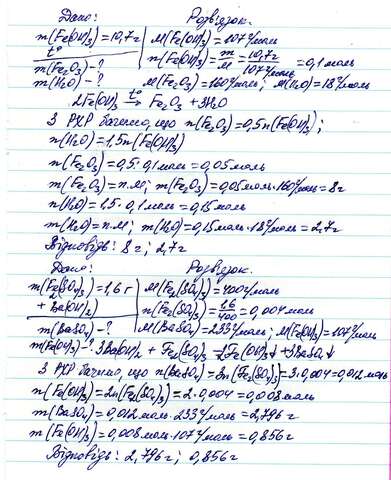 Дано: Розвʼязок.
m(Fe(OH)₃)=10,7г M(Fe(OH)₃)=107г/моль
t° n(Fe(OH)₃)=m/M=10,7г/107г/моль=0,1моль
m(Fe₂O₃)-?
m(H₂O)-? M(Fe₂O₃)=160г/моль; M(H₂O)=18г/моль
2Fe(OH)₃ →t° Fe₂O₃ + 3H₂O
З РХР бачимо, що n(Fe₂O₃)=0,5n(Fe(OH)₃);
n(H₂O)=1,5n(Fe(OH)₃)
n(Fe₂O₃)=0,5·0,1моль=0,05моль
m(Fe₂O₃)=n.M; m(Fe₂O₃)=0,05моль·160г/моль=8г
n(H₂O)=1,5·0,1моль=0,15моль
m(H₂O)=n.M; m(H₂O)=0,15моль·18г/моль=2,7г
Відповідь: 8г; 2,7г
Дано: Розвʼязок.
m(Fe₂(SO₄)₃)=1,6г M(Fe₂(SO₄)₃)=400г/моль
+Ba(OH)₂ n(Fe₂(SO₄)₃)=1,6/400=0,004моль
m(BaSO₄)-? M(BaSO₄)=233г/моль; M(Fe(OH)₃)=107г/моль
m(Fe(OH)₃)-? 3Ba(OH)₂ + Fe₂(SO₄)₃=2Fe(OH)₃↓+3BaSO₄↓
З РХР бачимо, що n(BaSO₄)=3n(Fe₂(SO₄)₃)=3·0,004=0,012моль
n(Fe(OH)₃)=2n(Fe₂(SO₄)₃)=2·0,004=0,008моль
m(BaSO₄)=0,012моль·233г/моль=2,796г
m(Fe(OH)₃)=0,008моль·107г/моль=0,856г
Відповідь: 2,796г; 0,856г